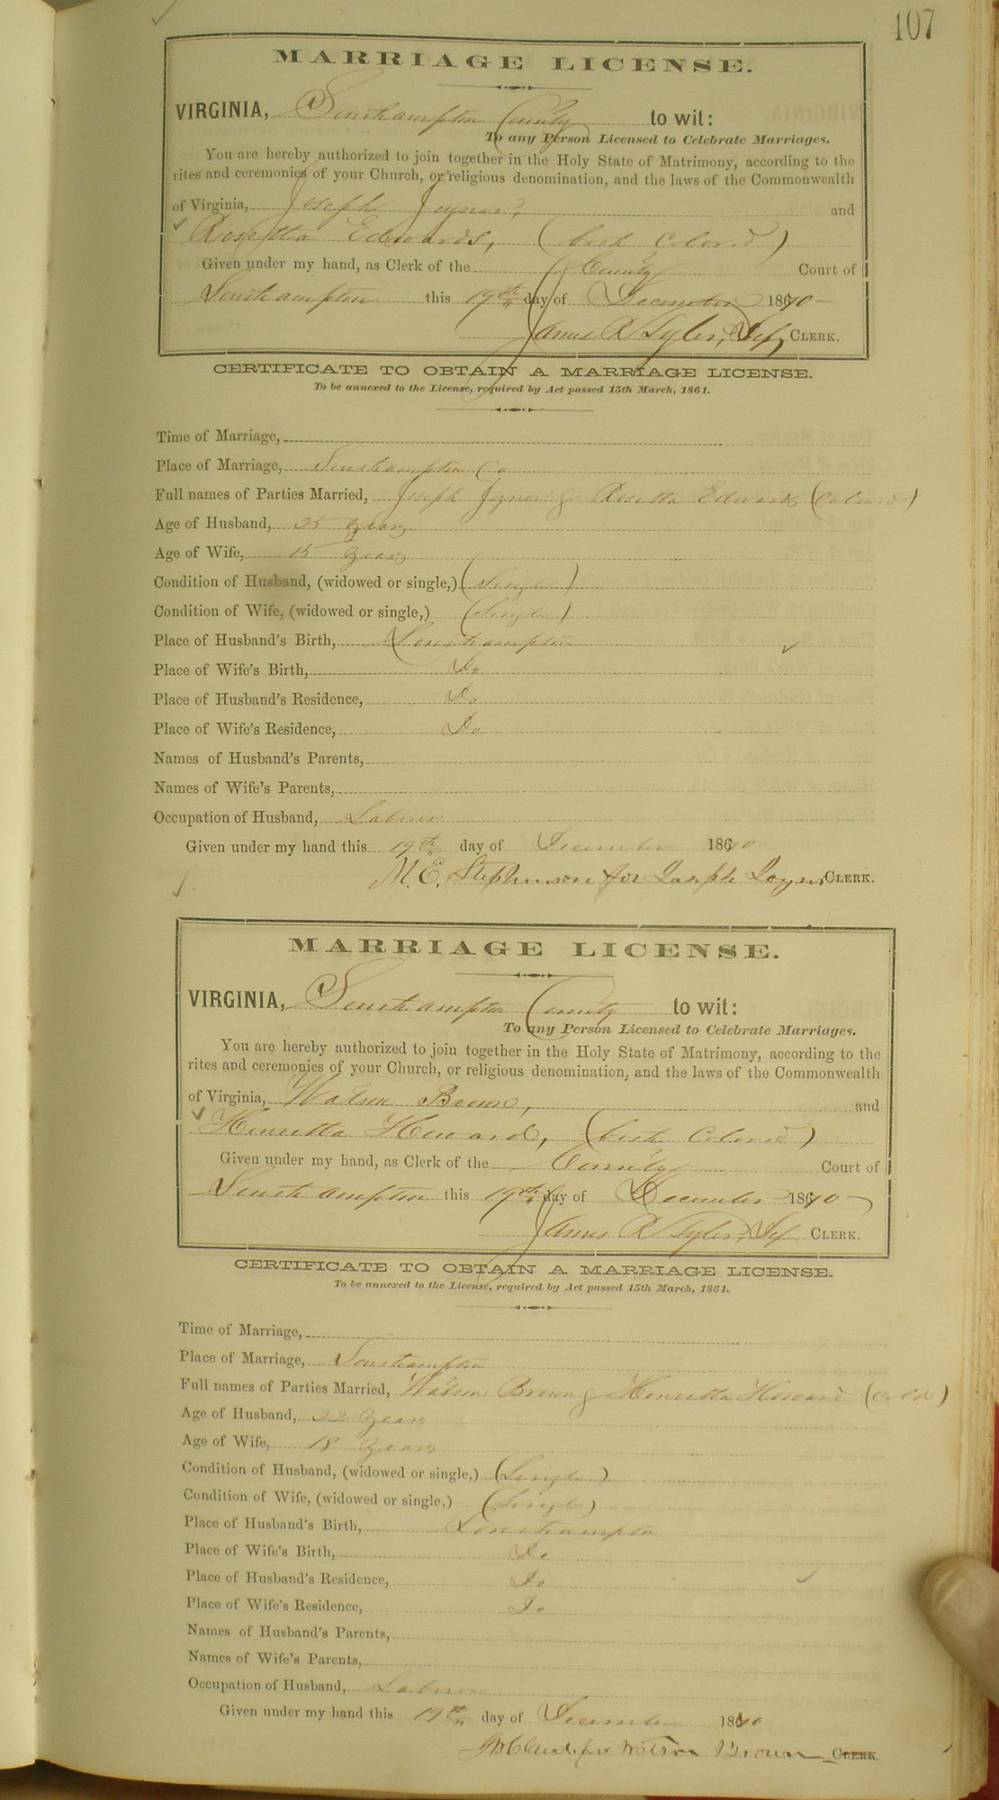 107
MARRIAGE LICENSE.
VIRGINIA, Southampton County to wit:
To any Person Licensed to Celebrate Marriages.
You are hereby authorized to join together in the Holy State of Matrimony, according to the
rites and ceremonies of your Church, or religious denomination, and the laws of the Commonwealth
of Virginia, Joseph Joyner, and
Rosetta Edwards, (both Colored)
Given under my hand, as Clerk of the County Court of
Southampton this 19th day of December 1870
James R Tyler, Dep, CLERK.
CERTIFICATE TO OBTAIN A MARRIAGE LICENSE.
To be annexed to the License, required by Act passed 15th March, 1861.
Time of Marriage,
Place of Marriage, Southampton Co
Full names of Parties Married, Joseph Joyner & Rosetta Edwards (Colored)
Age of Husband, 25 years
Age of Wife, 15 years
Condition of Husband, (widowed or single,) (Single)
Condition of Wife, (widowed or single,) (Single)
Place of Husband's Birth, Southampton
Place of Wife's Birth, Do
Place of Husband's Residence, Do
Place of Wife's Residence, Do
Names of Husband's Parents,
Names of Wife's Parents,
Occupation of Husband, Laborer
Given under my hand this 19th day of December 1870
M. E. Stephenson for Joseph Joyner CLERK.
MARRIAGE LICENSE.
VIRGINIA, Southampton County to wit:
To any Person Licensed to Celebrate Marriages.
You are hereby authorized to join together in the Holy State of Matrimony, according to the
rites and ceremonies of your Church, or religious denomination, and the laws of the Commonwealth
of Virginia, Watson Brown, and
Henrietta Howard, (both Colored)
Given under my hand, as Clerk of the County Court of
Southampton this 19th day of December 1870
James R Tyler, Dep CLERK.
CERTIFICATE TO OBTAIN A MARRIAGE LICENSE.
To be annexed to the License, required by Act passed 15th March, 1861.
Time of Marriage,
Place of Marriage, Southampton
Full names of Parties Married, Watson Brown & Henrietta Howard (Cold)
Age of Husband, 22 years
Age of Wife, 18 years
Condition of Husband, (widowed or single,) (Single)
Condition of Wife, (widowed or single,) (Single)
Place of Husband's Birth, Southampton
Place of Wife's Birth, Do
Place of Husband's Residence, Do
Place of Wife's Residence, Do
Names of Husband's Parents,
Names of Wife's Parents,
Occupation of Husband, Laborer
Given under my hand this 19th day of December 1870
Watson Brown CLERK